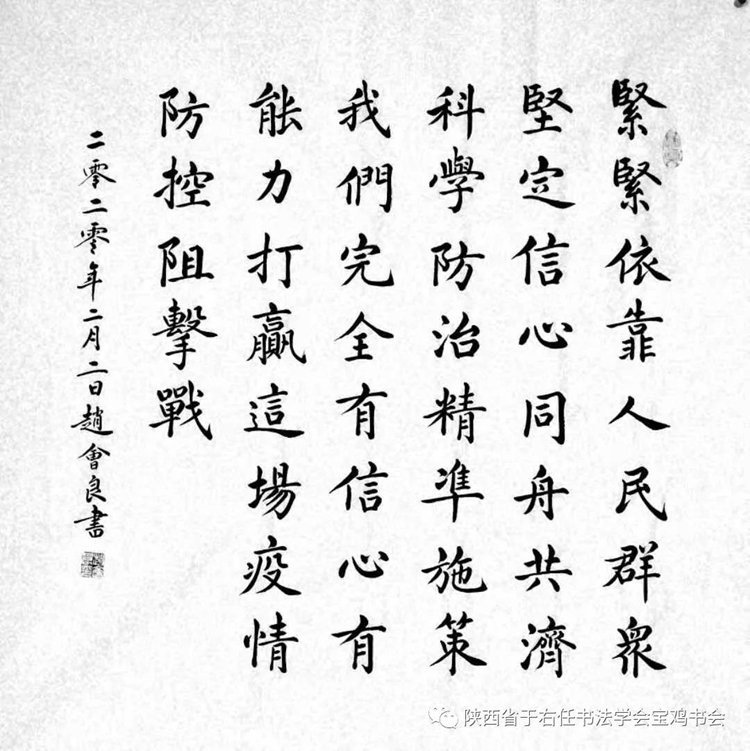 緊緊依靠人民群眾
堅定信心同舟共濟
科學防治精準施策
我們完全有信心有
能力打贏這場疫情
防控阻擊戰
二零二零年二月二日趙會良書
陕西省于右任书法学会宝鸡书会